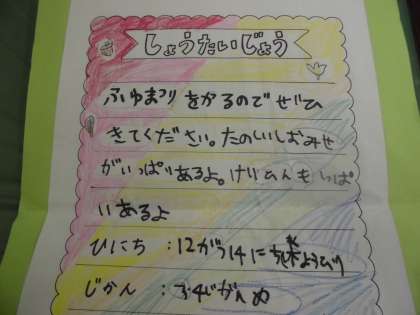 しょうたいじょう
ふゆまつりをかるのでぜひ
きてください。たのいしおみせ
がいっぱいあるよ。けいひんもいっぱ
いあるよ
ひにち：12がつ14に
じかん：